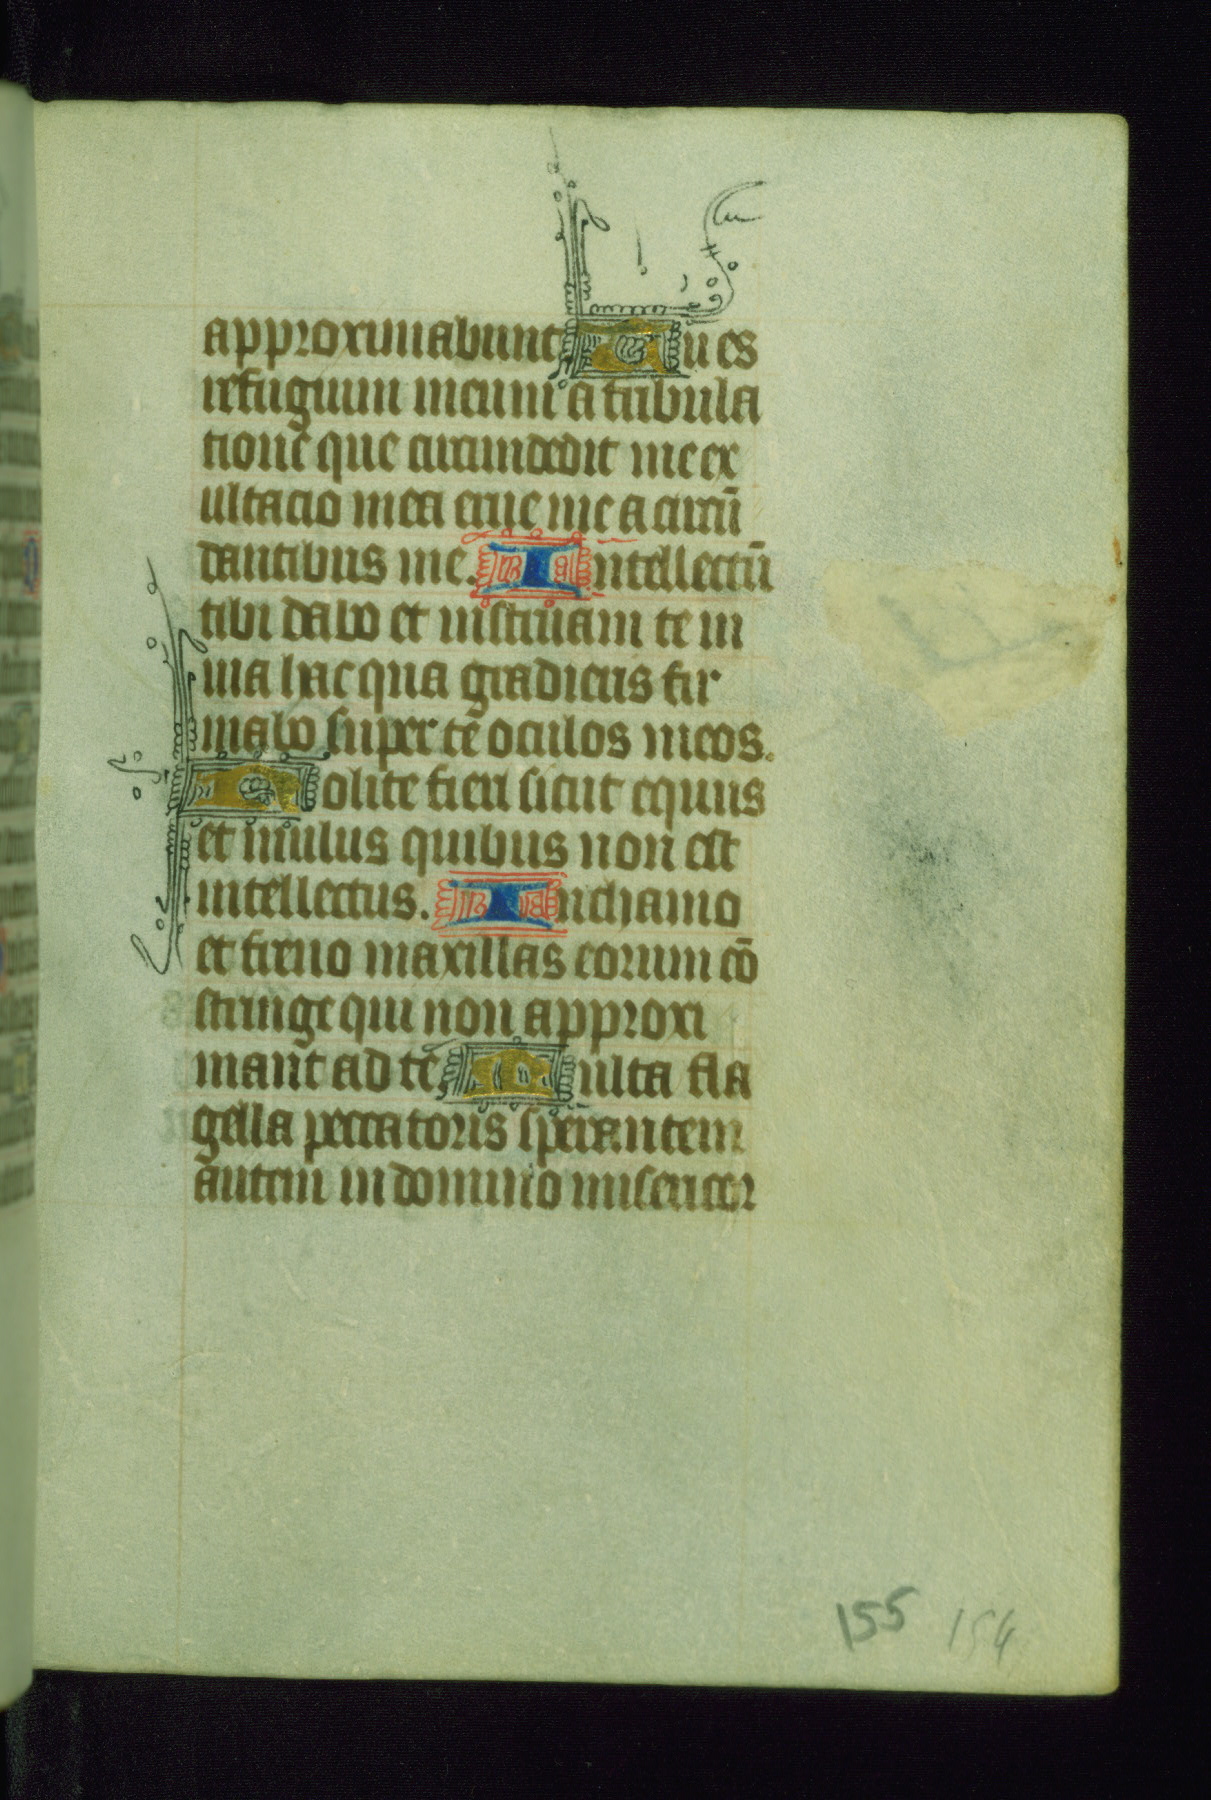 approximabunt Tu es
refugium meum a tribula
tione que circumdedit me ex
ultacio mea erue me a circū
dantibus me. Intellectū
tibi dabo et instruam te in
uia hac qua gradieris fir
mabo super te oculos meos.
Nolite fieri sicut equus
et mulus quibus non est
intellectus. In chamo
et freno maxillas eorum cō
stringe qui non approxi
mant ad te Multa fla
gella peccatoris sperantem
autem in domino misericor
155 154